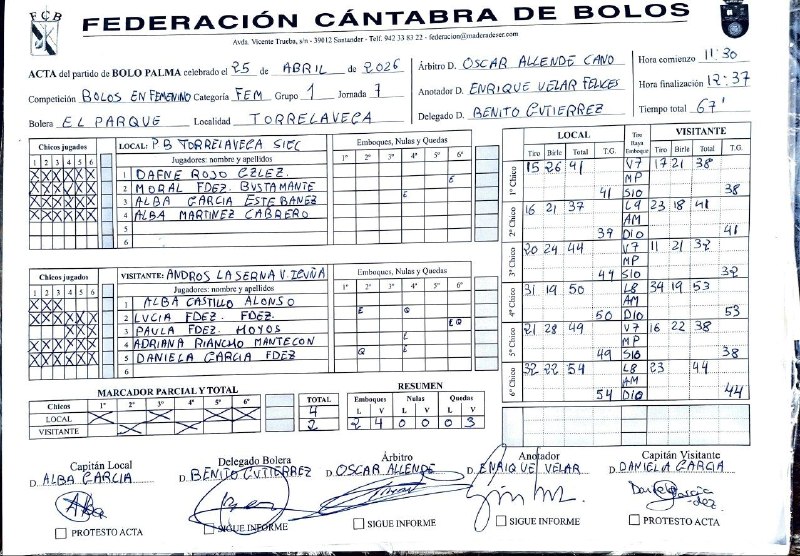 F C B
FEDERACIÓN CÁNTABRA DE BOLOS
Avda. Vicente Trueba, s/n - 39012 Santander - Telf. 942 33 83 22 - federacion@maderadeser.com
ACTA del partido de BOLO PALMA celebrado el 25 de ABRIL de 2026
Competición BOLOS EN FEMENINO Categoría FEM Grupo 1 Jornada 7
Bolera EL PARQUE Localidad TORRELAVEGA
Árbitro D. OSCAR ALLENDE CANO
Anotador D. ENRIQUE VELAR FELICES
Delegado D. BENITO GUTIERREZ
Hora comienzo 11:30
Hora finalización 12:37
Tiempo total 67'
Chicos jugados
1 2 3 4 5 6
LOCAL: PB TORRELAVEGA SIEC
Jugadores: nombre y apellidos
Emboques, Nulas y Quedas
1º 2º 3º 4º 5º 6º
X X X X X X 1 DAFNE ROJO GZLEZ.
X X X X X X 2 MORAL FDEZ. BUSTAMANTE E
X X X X X X 3 ALBA GARCIA ESTEBANEZ E
X X X X X X 4 ALBA MARTINEZ CABRERO
5
6
Chicos jugados
1 2 3 4 5 6
VISITANTE: ANDROS LA SERNA VIENTÑA
Jugadores: nombre y apellidos
Emboques, Nulas y Quedas
1º 2º 3º 4º 5º 6º
1 ALBA CASTILLO ALONSO
2 LUCIA FDEZ. FDEZ. E Q
3 PAULA FDEZ. HOYOS E Q
4 ADRIANA RIANCHO MANTECON E
5 DANIELA GARCIA FDEZ Q E
6
LOCAL
Tiro Birle Total T.G.
Tiro Raya Emboque
VISITANTE
Tiro Birle Total T.G.
1º Chico 15 26 41 V7 17 21 38
MP
41 S10 38
2º Chico 16 21 37 L9 23 18 41
AM
39 D10 41
3º Chico 20 24 44 V7 11 21 32
MP
44 S10 32
4º Chico 31 19 50 L8 34 19 53
AM
50 D10 53
5º Chico 21 28 49 V7 16 22 38
MP
49 S10 38
6º Chico 32 22 54 L8 23 44
AM
54 D10 44
MARCADOR PARCIAL Y TOTAL
Chicos 1º 2º 3º 4º 5º 6º TOTAL
LOCAL X X X X 4
VISITANTE X X 2
RESUMEN
Emboques Nulas Quedas
L V L V L V
2 4 0 0 0 3
Capitán Local
D. ALBA GARCIA
PROTESTO ACTA
Delegado Bolera
D. BENITO GUTIERREZ
SIGUE INFORME
Árbitro
D. OSCAR ALLENDE
SIGUE INFORME
Anotador
D. ENRIQUE VELAR
SIGUE INFORME
Capitán Visitante
D. DANIELA GARCIA
PROTESTO ACTA